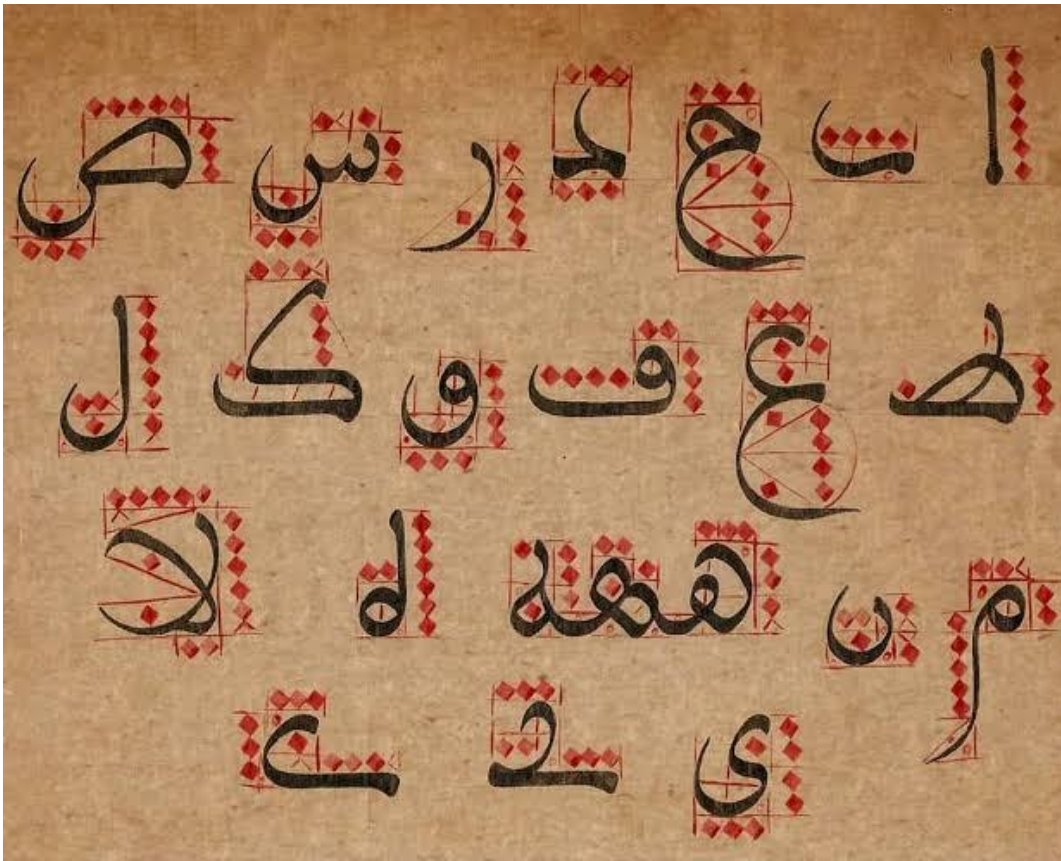 ا ب ح د ر س ص
ط ع ف و ک ل
م ن ههه ه لا
ى ے ے